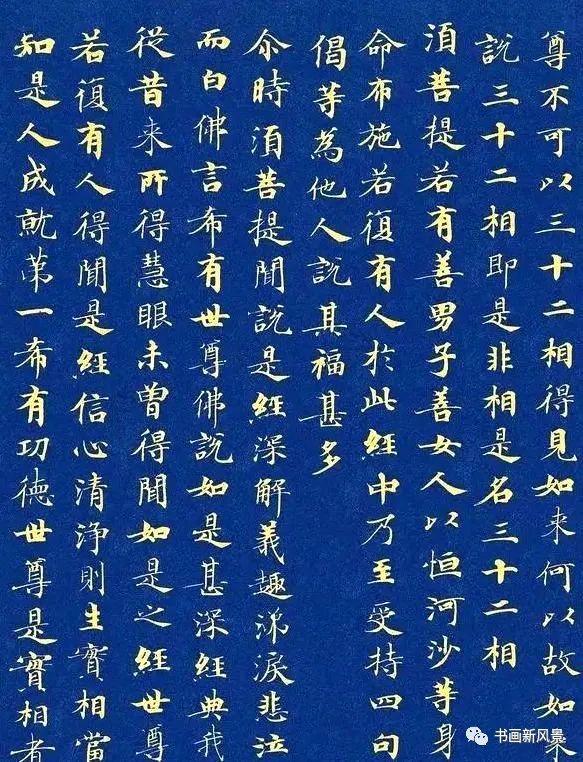 尊不可以三十二相得見如来何以故如来
說三十二相即是非相是名三十二相
湏菩提若有善男子善女人以恒河沙等身
命布施若復有人於此經中乃至受持四句
偈等為他人說其福甚多
尒時湏菩提聞說是經深解義趣涕淚悲泣
而白佛言希有世尊佛說如是甚深經典我
從昔来所得慧眼未曾得聞如是之經世尊
若復有人得聞是經信心清淨則生實相當
知是人成就苐一希有功德世尊是實相者
书画新风景